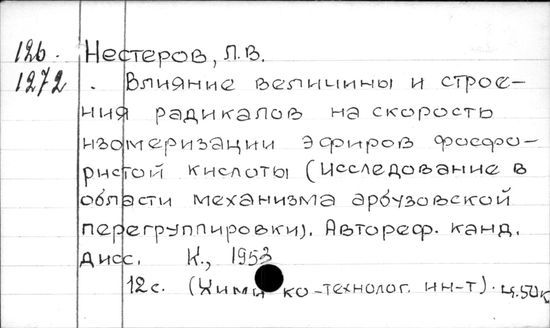 126. Нестеров, Л.В.
1272 . Влияние величины и строе-
ния радикалов на скорость
изомеризации эфиров фосфо-
ристой кислоты (Исследование в
области механизма арбузовской
перегруппировки). Автореф. канд.
дисс. К., 1953
12с. (Хими ко-технолог. ин-т).